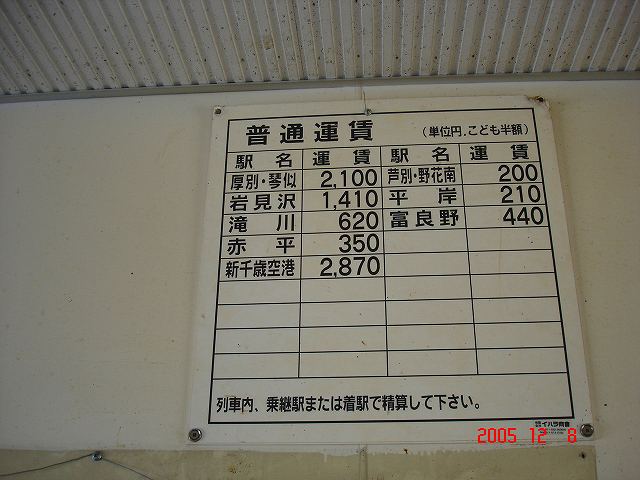 普通運賃 (単位円、こども半額)
駅名 運賃 駅名 運賃
厚別・琴似 2,100 芦別・野花南 200
岩見沢 1,410 平岸 210
滝川 620 富良野 440
赤平 350
新千歳空港 2,870
列車内、乗継駅または着駅で精算して下さい。
2005 12 8